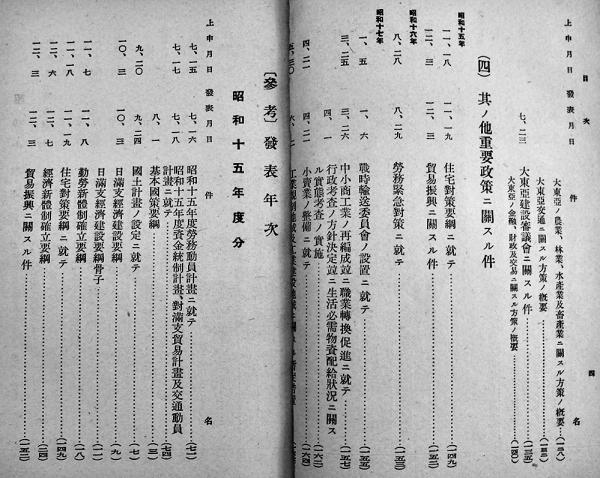 目次
四
上申月日 發表月日 件名
大東亞ノ農業、林業、水産業及畜産業ニ關スル方策ノ概要
大東亞交通ニ關スル方策ノ概要
大東亞ノ金融、財政及交易ニ關スル方策ノ概要
七、二三 大東亞建設審議會ニ關スル件
(四) 其ノ他重要政策ニ關スル件
昭和十五年
一一、一八 一一、一九 住宅對策要綱ニ就テ (一四九)
一二、三 一二、三 貿易振興ニ關スル件
昭和十六年
八、二八 八、二九 勞務緊急對策ニ就テ (一五三)
昭和十七年
一、六 戰時輸送委員會ノ設置ニ就テ (一五五)
三、二五 三、二六 中小商工業ノ再編成竝ニ職業轉換促進ニ就テ (一五七)
四、一 行政考査ノ方針決定竝ニ生活必需物資配給狀況ニ關スル實態考査ノ實施
四、二一 四、二一 小賣業ノ整備ニ就テ
[參考] 發表年次
昭和十五年度分
上申月日 發表月日 件名
七、一五 七、一六 昭和十五年度勞務動員計畫ニ就テ (七二)
七、一七 昭和十五年度資金統制計畫、對滿支貿易計畫及交通動員計畫ニ就テ (七四)
八、一 基本國策要綱 (一)
九、二〇 九、二四 國土計畫ノ設定ニ就テ (七)
一〇、三 一〇、三 日滿支經濟建設要綱 (九)
日滿支經濟建設要綱骨子 (一一)
一一、七 一一、八 勤勞新體制確立要綱 (一八)
一一、一八 一一、一九 住宅對策要綱ニ就テ (一四九)
一二、六 一二、七 經濟新體制確立要綱
一二、三 一二、三 貿易振興ニ關スル件